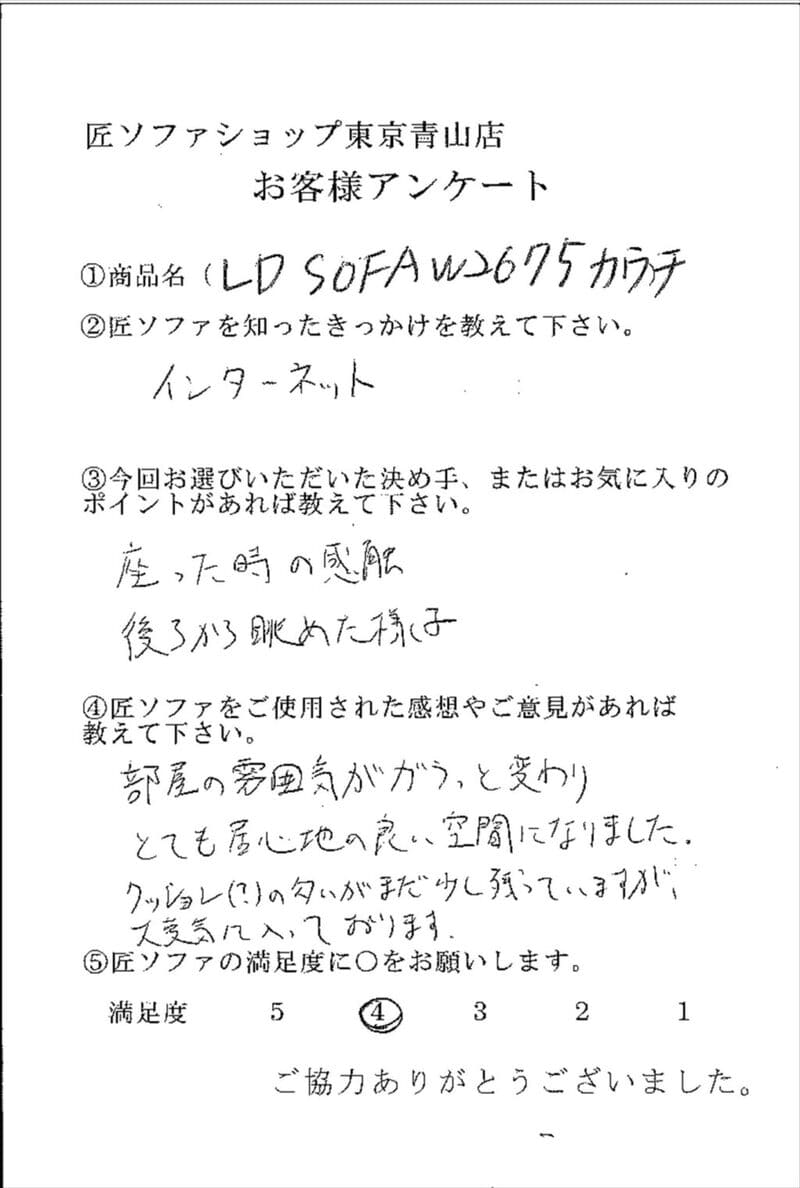 匠ソファショップ東京青山店
お客様アンケート
①商品名（LD SOFA W2675カウチ
②匠ソファを知ったきっかけを教えて下さい。
インターネット
③今回お選びいただいた決め手、またはお気に入りの
ポイントがあれば教えて下さい。
座った時の感触
後ろから眺めた様子
④匠ソファをご使用された感想やご意見があれば
教えて下さい。
部屋の雰囲気がガラっと変わり
とても居心地の良い空間になりました.
クッション(?)の匂いがまだ少し残っていますが、
大変気に入っております.
⑤匠ソファの満足度に〇をお願いします。
満足度 5 4 3 2 1
ご協力ありがとうございました。